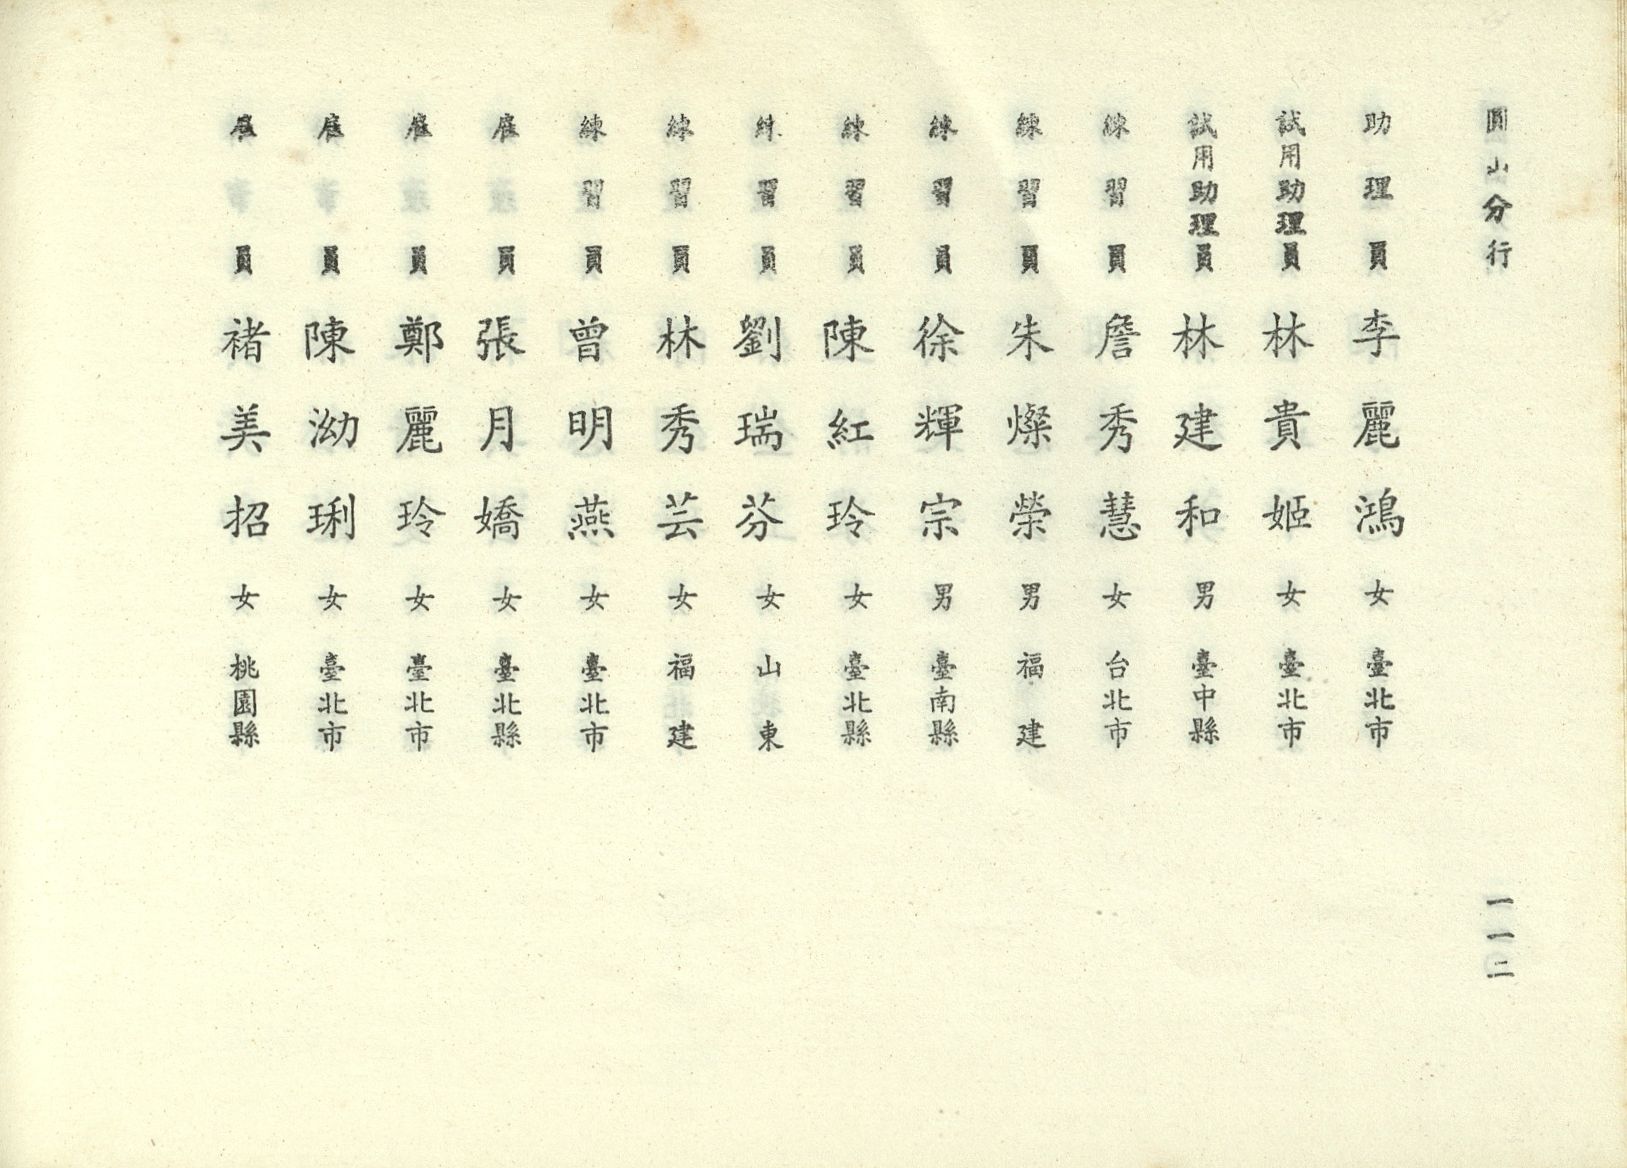 圓山分行
助理員 李麗鴻 女 臺北市
試用助理員 林貴姬 女 臺北市
試用助理員 林建和 男 臺中縣
練習員 詹秀慧 女 台北市
練習員 朱燦榮 男 福建
練習員 徐輝宗 男 臺南縣
練習員 陳紅玲 女 臺北縣
練習員 劉瑞芬 女 山東
練習員 林秀芸 女 福建
練習員 曾明燕 女 臺北市
雇員 張月嬌 女 臺北縣
雇員 鄭麗玲 女 臺北市
雇員 陳泑琍 女 臺北市
雇員 褚美招 女 桃園縣
一一二